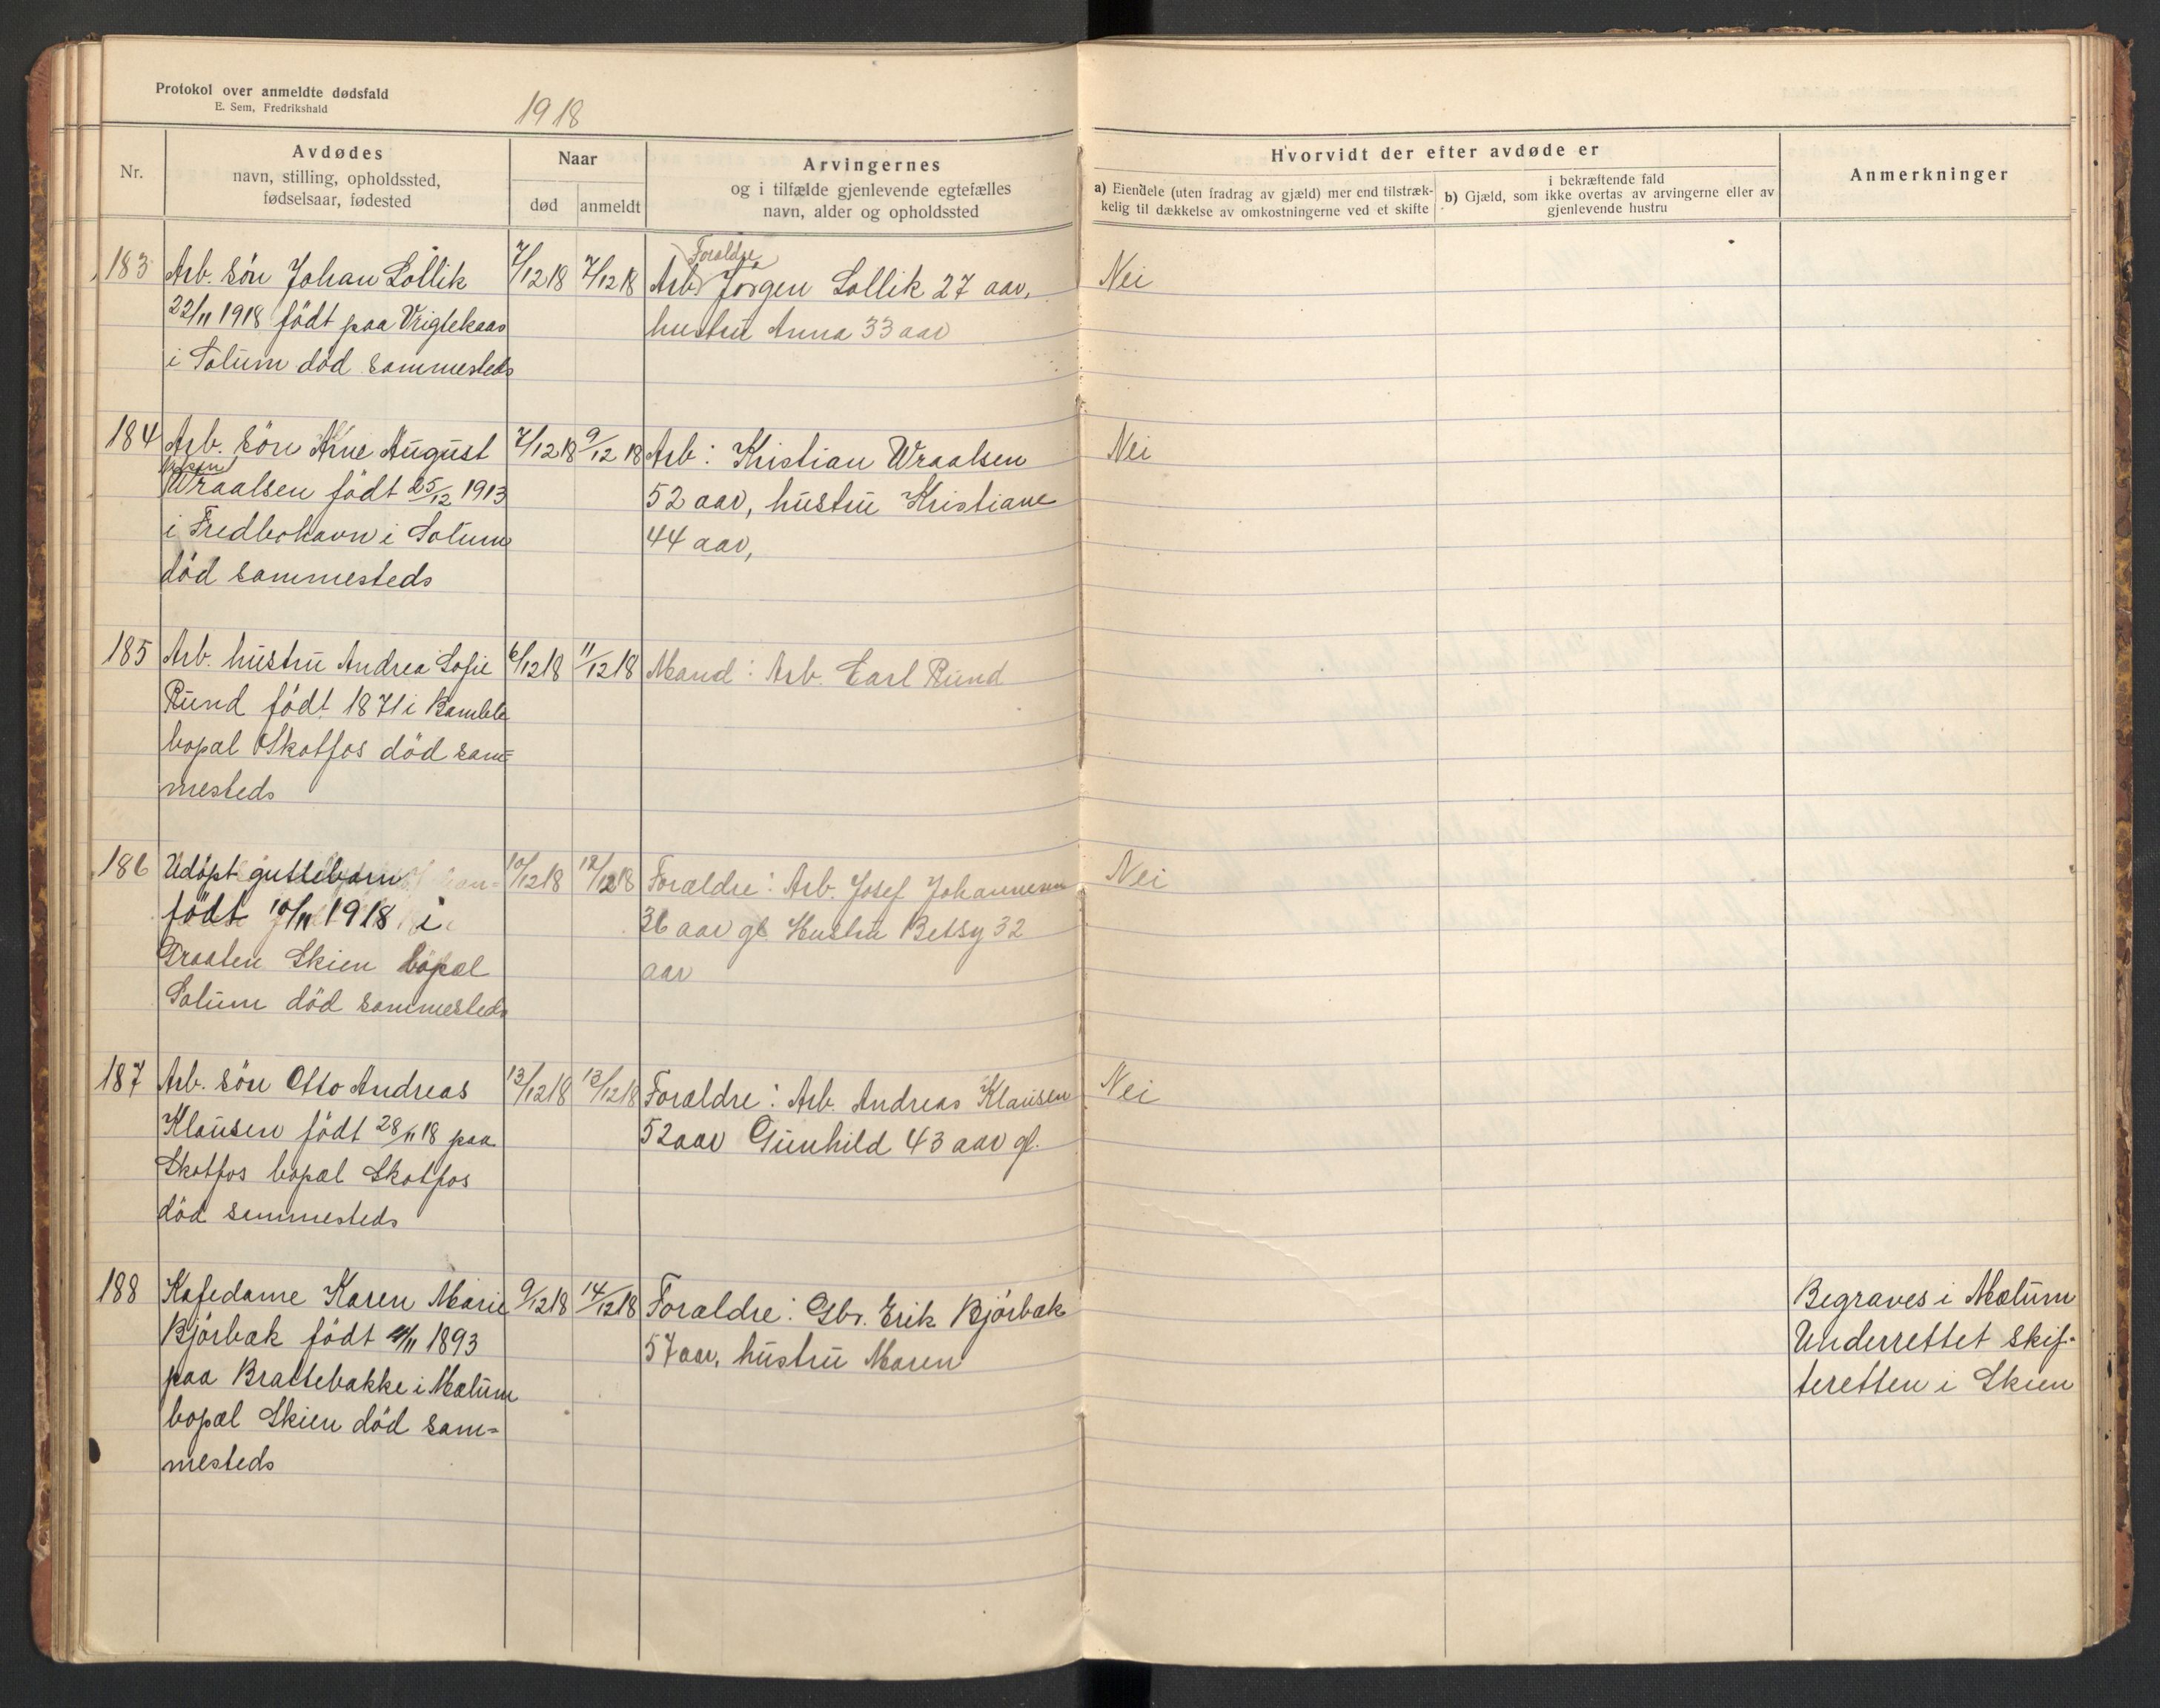 Protokol over anmeldte dødsfald
E. Sem, Fredrikshald
1918
Nr.
Avdødes
navn, stilling, opholdssted,
fødselsaar, fødested
Naar
død
anmeldt
Arvingernes
og i tilfælde gjenlevende egtefælles
navn, alder og opholdssted
Hvorvidt der efter avdøde er
a) Eiendele (uten fradrag av gjæld) mer end tilstræk-
kelig til dækkelse av omkostningerne ved et skifte
i bekræftende fald
b) Gjæld, som ikke overtas av arvingerne eller av
gjenlevende hustru
Anmerkninger
183
Arb. sön Johan Lollik
22/11 1918 födt paa
i Solum död sammesteds
7/12 18
7/12 18
Foraldre
Arb Jørgen Lollik 27 aar,
hustru Anna 33 aar
Nei
184
Arb. sön Arne August
Wraalsen födt 25/12 1913
i Fredlyshavn i Solum
död sammesteds
7/12 18
9/12 18
Arb: Kristian Wraalsen
52 aar, hustru Kristiane
44 aar,
Nei
185
Arb. hustru Andrea Sofie
Rund födt 1871 i Bamble
bopæl Skotfos död sam=
mesteds
6/12 18
11/12 18
Mand: Arb. Carl Rund
186
Udöpt guttebarn
födt 10/11 1918 i
Graaten Skien bopæl
Solum död sammesteds
10/12 18
12/12 18
Foraldre: Arb. Josef Johannesen
36 aar gl Hustru Betsy 32
aar
Nei
187
Arb. sön Otto Andreas
Klausen födt 28/11 18 paa
Skotfos bopæl Skotfos
död sammesteds
13/12 18
13/12 18
Foraldre: Arb. Andreas Klausen
52 aar Gunhild 43 aar gl.
Nei
188
Kafedame Karen Marie
Björbæk födt 11/11 1893
paa Brattebakke i Mælum
bopæl Skien död sam=
mesteds
9/12 18
14/12 18
Foraldre: Gbr. Erik Björbæk
57 aar, hustru Maren
Begraves i Mælum
Underrettet skif-
teretten i Skien